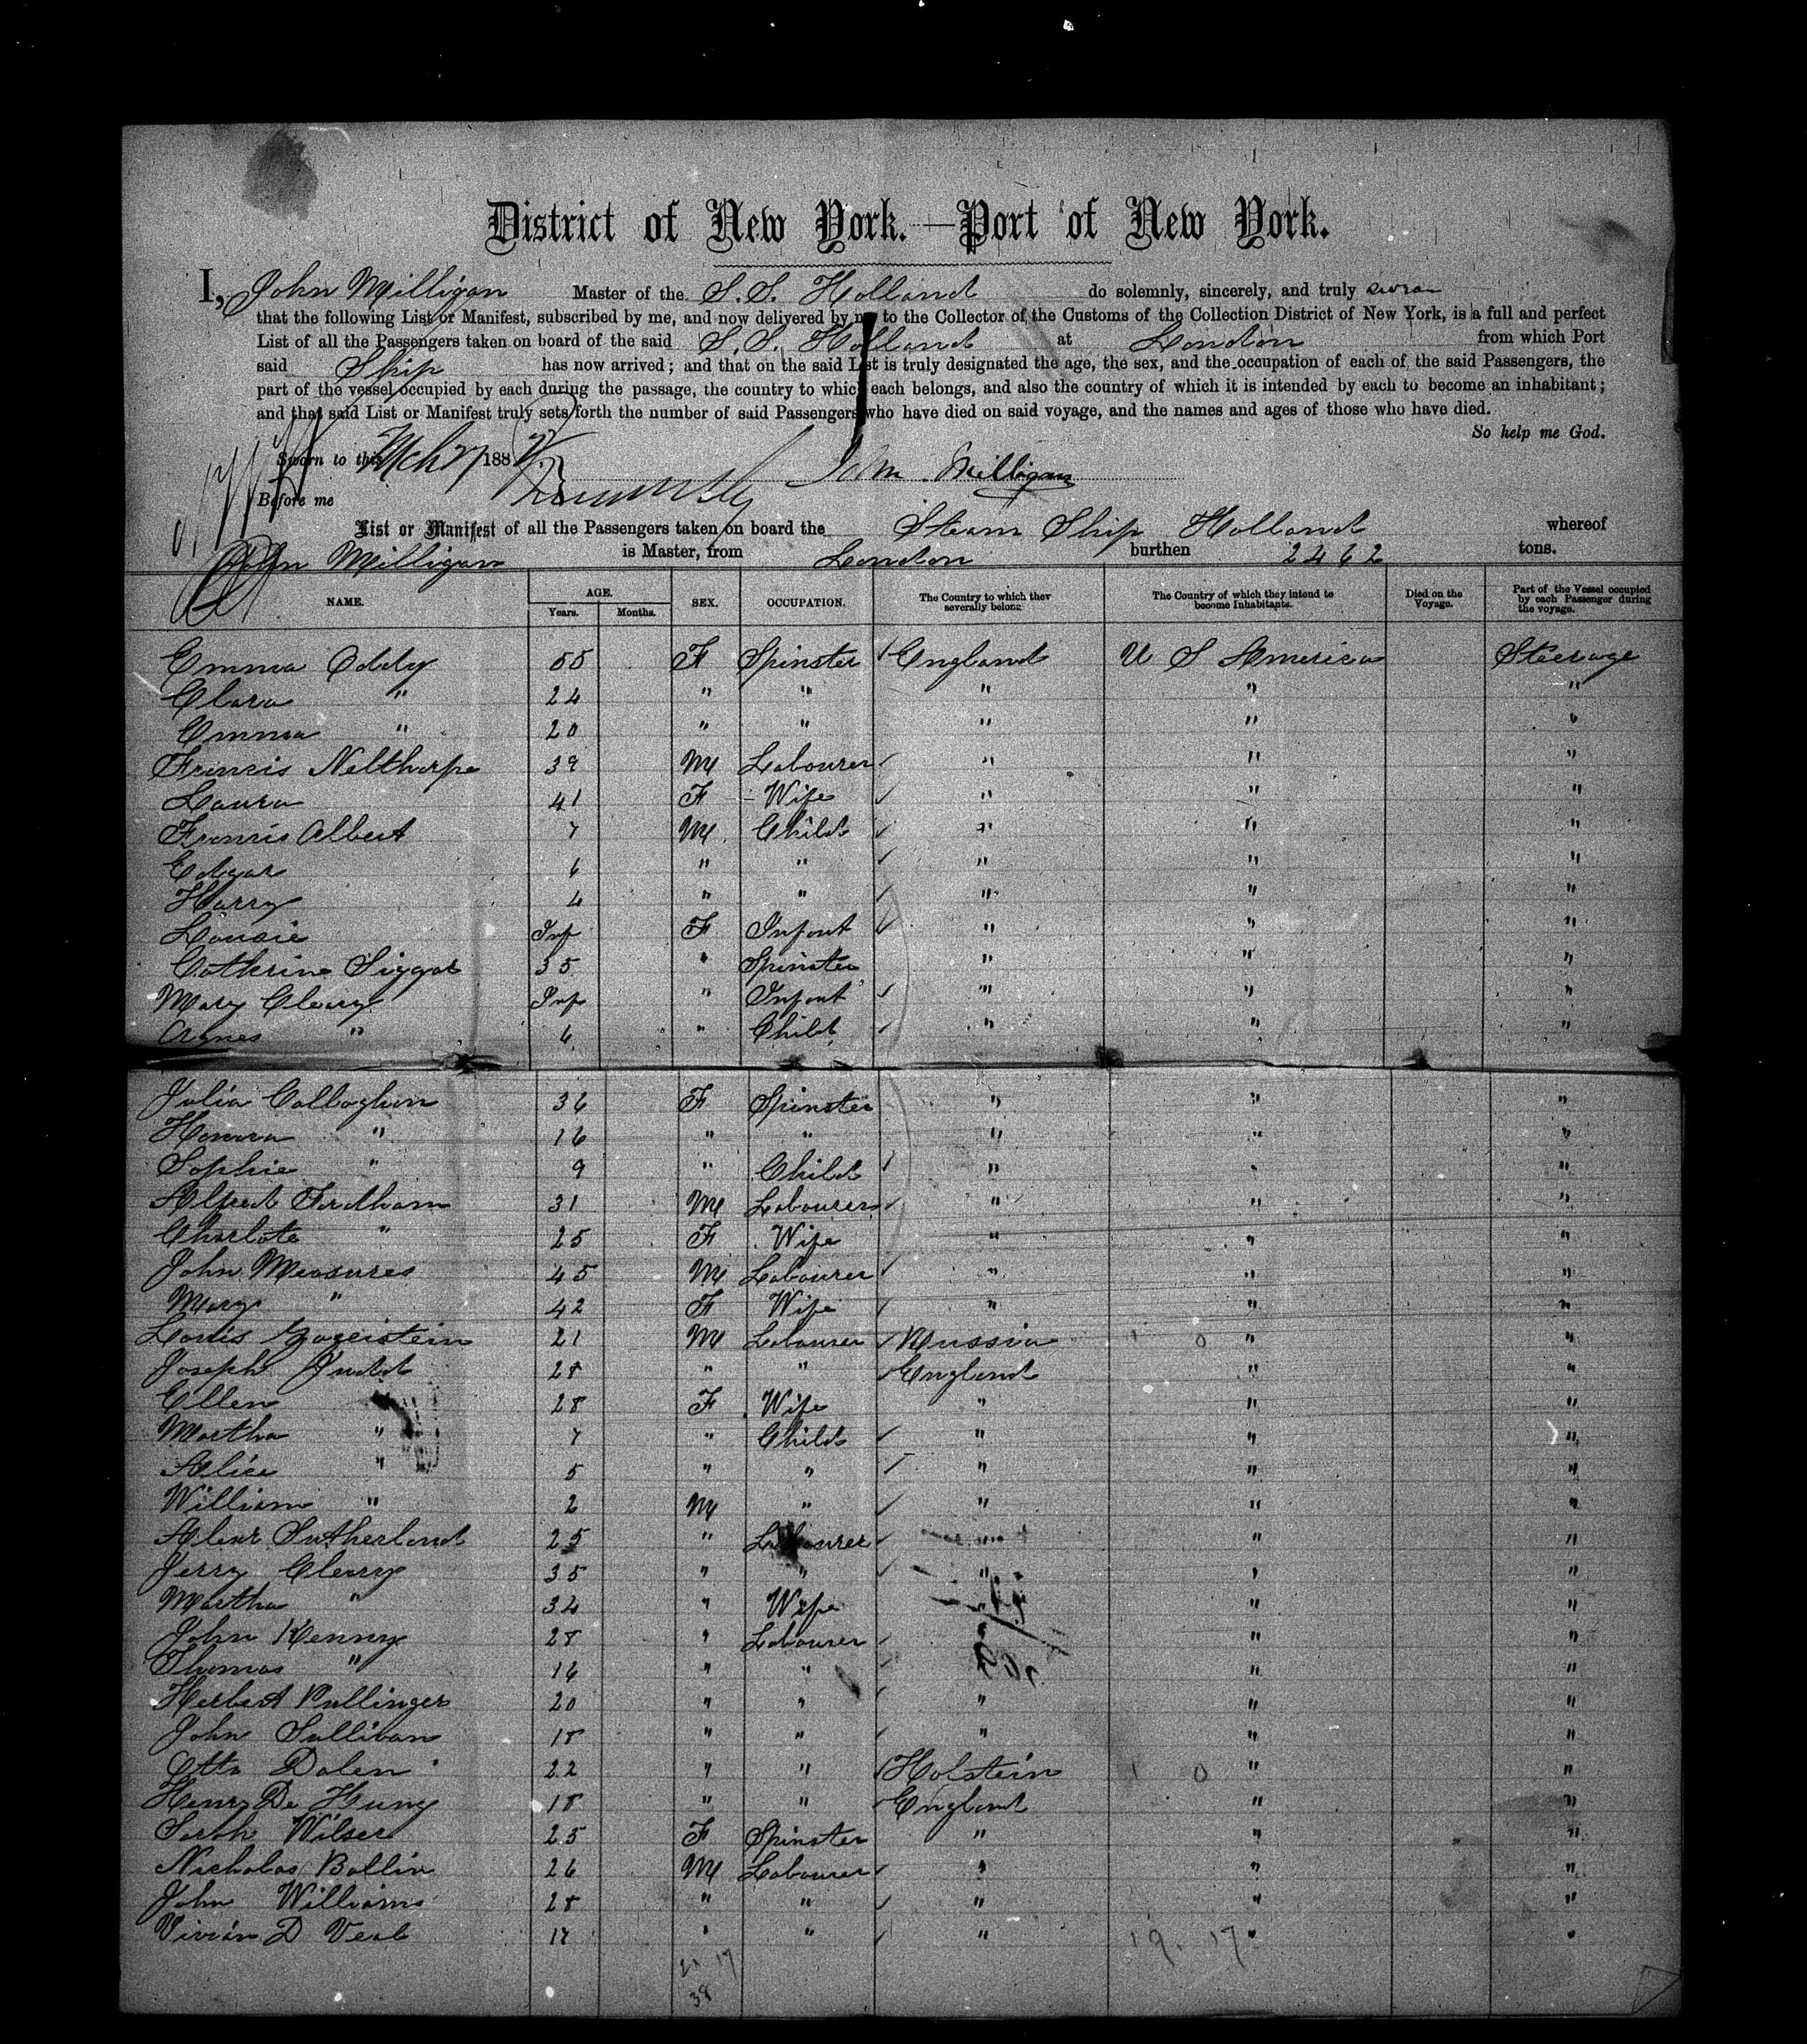 District of New York.—Port of New York.
I, John Milligan Master of the S.S. Holland do solemnly, sincerely, and truly swear
that the following List or Manifest, subscribed by me, and now delivered by me to the Collector of the Customs of the Collection District of New York, is a full and perfect
List of all the Passengers taken on board of the said S.S. Holland at London from which Port
said Ship has now arrived; and that on the said List is truly designated the age, the sex, and the occupation of each of the said Passengers, the
part of the vessel occupied by each during the passage, the country to which each belongs, and also the country of which it is intended by each to become an inhabitant;
and that said List or Manifest truly sets forth the number of said Passengers who have died on said voyage, and the names and ages of those who have died.
So help me God.
Sworn to this Mch 27 188
John Milligan
Before me
List or Manifest of all the Passengers taken on board the Steam Ship Holland whereof
John Milligan is Master, from London burthen 2462 tons.
NAME. AGE. Years. Months. SEX. OCCUPATION. The Country to which they severally belong. The Country of which they intend to become Inhabitants. Died on the Voyage. Part of the Vessel occupied by each Passenger during the voyage.
Emma Oddy 55 F Spinster England U S America Steerage
Clara " 24 " " " " "
Emma " 20 " " " " "
Francis Nelthorpe 39 M Labourer " " "
Laura 41 F Wife " " "
Francis Albert 7 M Child " " "
Edgar 6 " " " " "
Harry 4 " " " " "
Lousie Inf F Infant " " "
Cathrine Siggot 35 " Spinster " " "
Mary Cleary Inf " Infant " " "
Agnes " 6 " Child " " "
Julia Callaghan 36 F Spinster " " "
Honora " 16 " " " " "
Sophie " 9 " Child " " "
Alfred Fordham 31 M Labourer " " "
Charlote " 25 F Wife " " "
John Measures 45 M Labourer " " "
Mary " 42 F Wife " " "
Louis 21 M Labourer Russia " "
Joseph Judd 28 " " England " "
Ellen 28 F Wife " " "
Martha " 7 " Child " " "
Alice " 5 " " " " "
William " 2 M " " " "
Alexr Sutherland 25 " Labourer " " "
Jerry Cleary 35 " " " " "
Martha " 34 " Wife " " "
John Kenny 28 " Labourer " "
Thomas " 16 " " " "
Herbert Pullinger 20 " " " " "
John Sullivan 18 " " " " "
Otto Dolen 22 " " Holstein " "
Henry De Hung 18 " " England " "
Sarah Wilser 25 F Spinster " " "
Nicholas Bollin 26 M Labourer " " "
John Williams 28 " " " " "
Vivian D Veal 17 " " " " "
21 17 19. 17
38